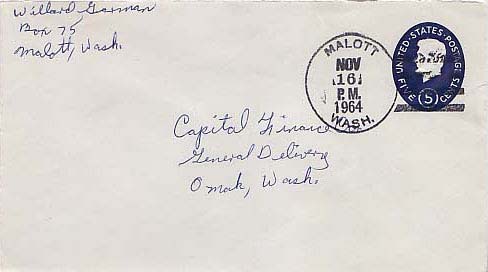 Willard Garman
Box 75
Malott, Wash.
MALOTT
NOV
16
P.M.
1964
WASH.
UNITED STATES POSTAGE
FIVE (5) CENTS
Capital Finance
General Delivery
Omak, Wash.